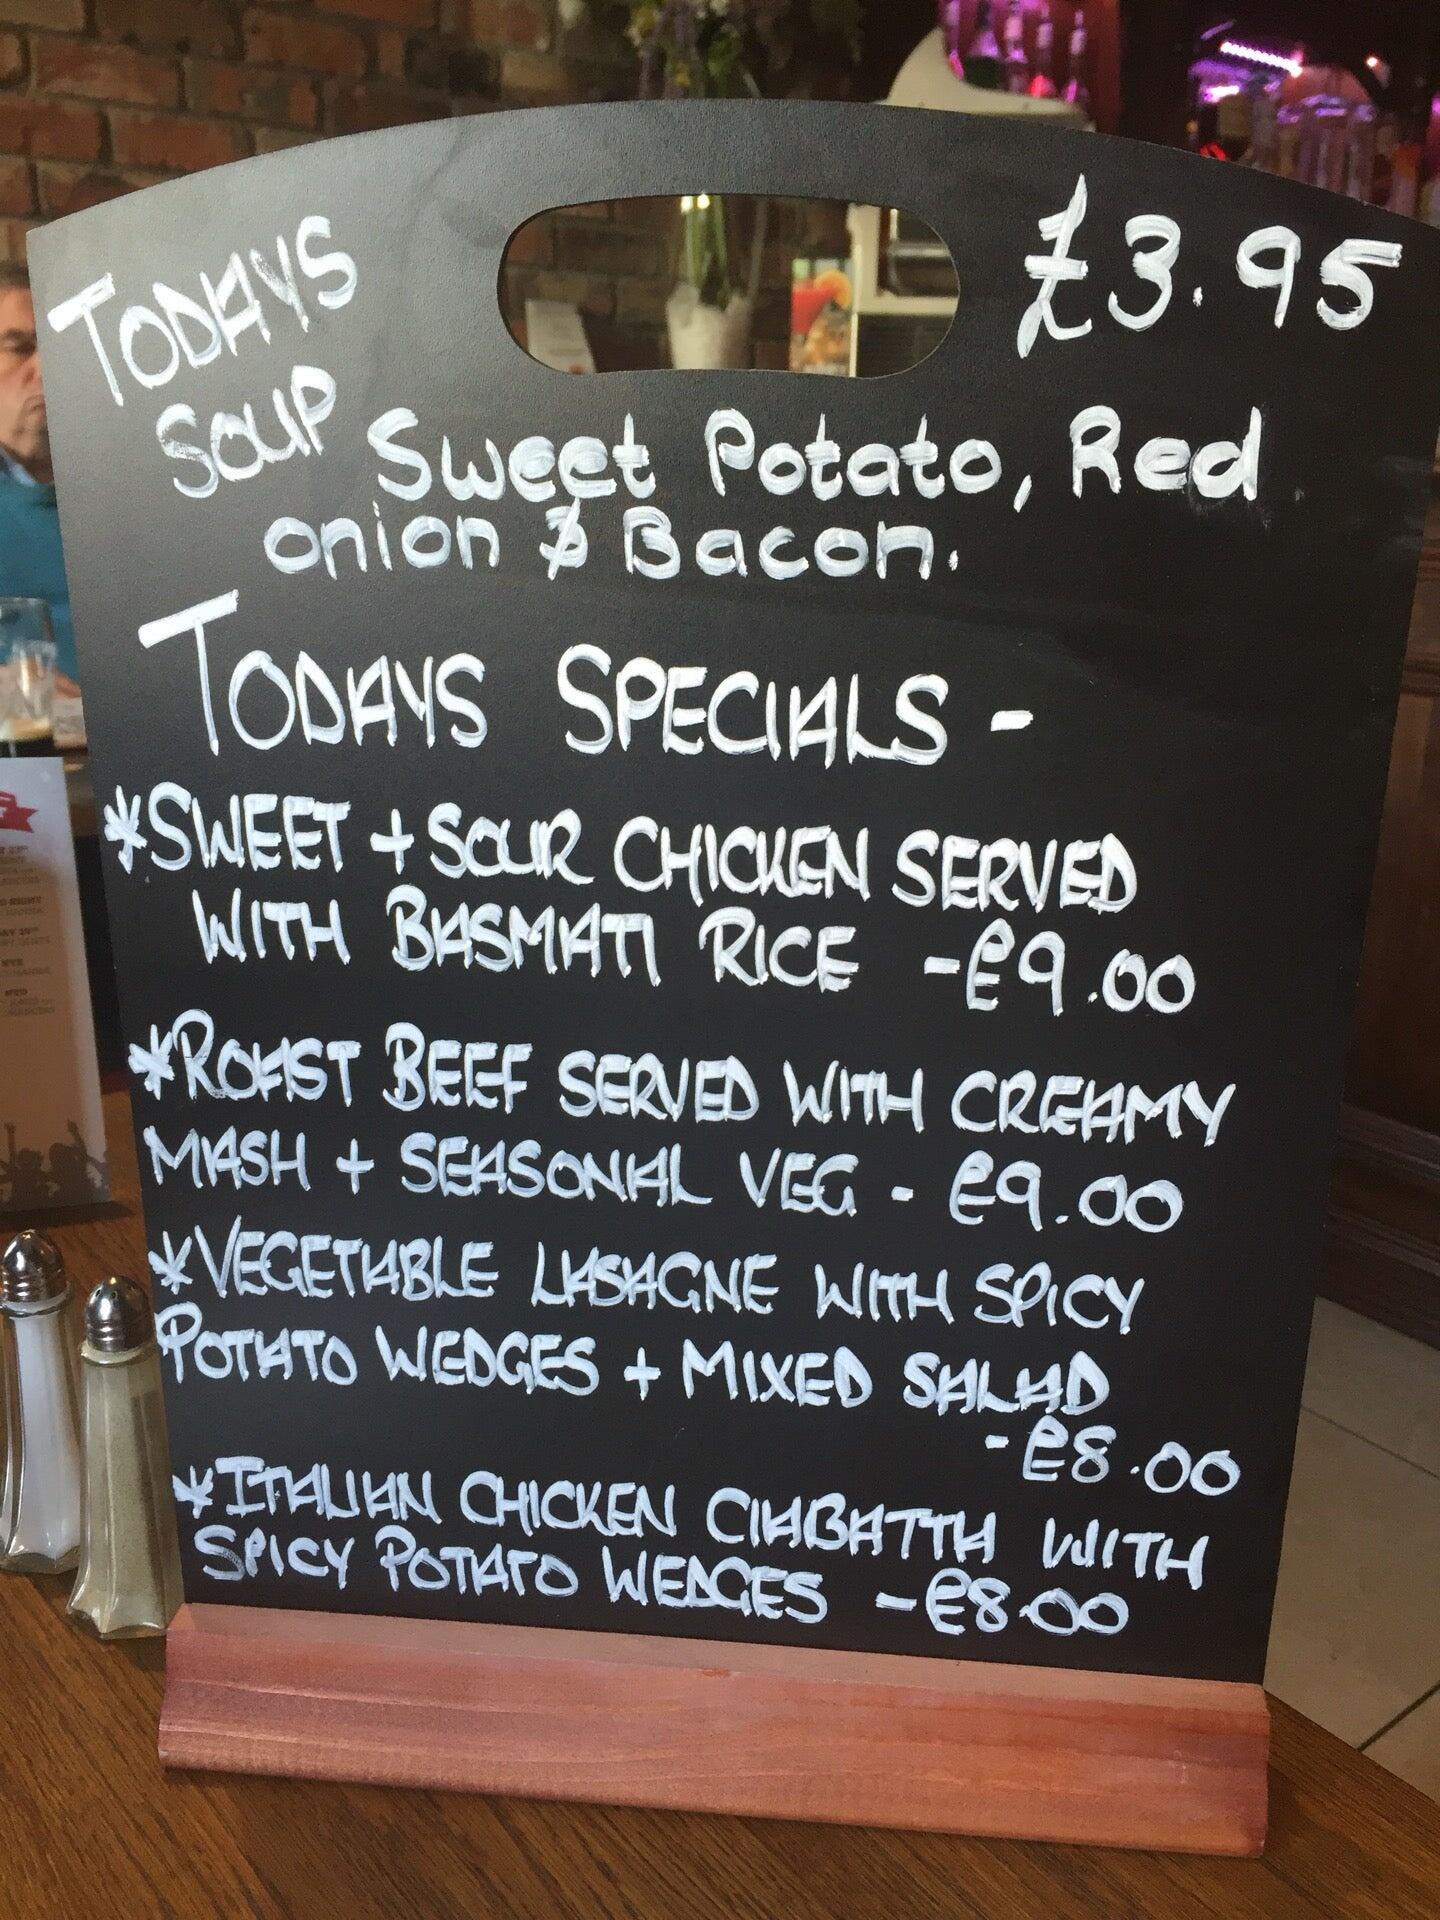 TODAYS
SOUP
£3.95
Sweet Potato, Red
onion & Bacon.
TODAYS SPECIALS -
*SWEET + SOUR CHICKEN SERVED
WITH BASMATI RICE - £9.00
*ROAST BEEF SERVED WITH CREAMY
MASH + SEASONAL VEG - £9.00
*VEGETABLE LASAGNE WITH SPICY
POTATO WEDGES + MIXED SALAD
- £8.00
*ITALIAN CHICKEN CIABATTA WITH
SPICY POTATO WEDGES - £8.00